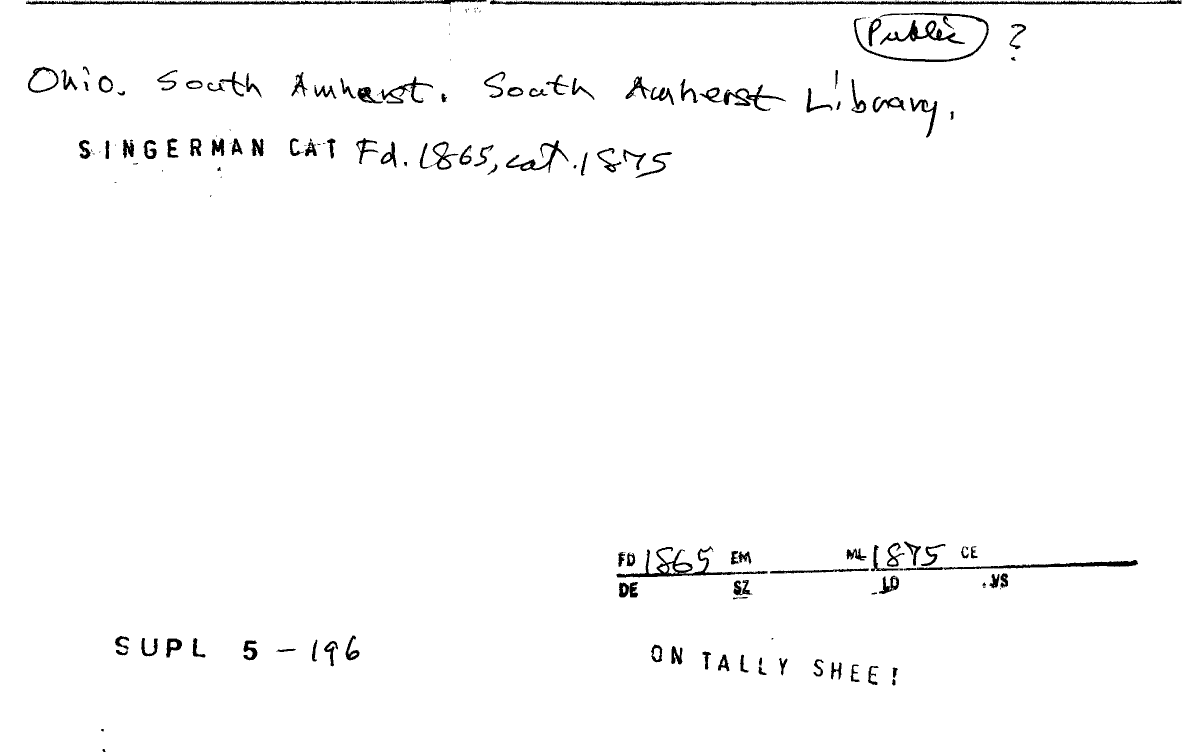 Public ?
Ohio. South Amherst. South Amherst Library.
SINGERMAN CAT Fd. 1865, cat. 1875
FD 1865 EM ML 1875 CE
DE SZ LD VS
SUPL 5 - 196
ON TALLY SHEET